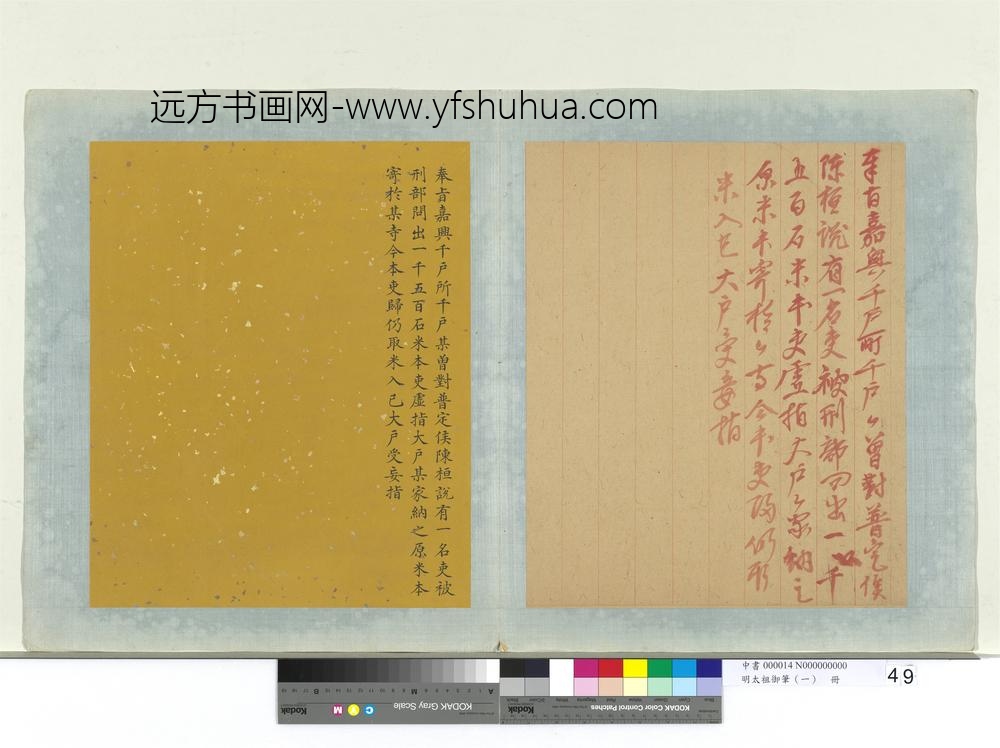 远方书画网-www.yfshuhua.com
奉旨嘉興千戶所千戶厶曾對普定侯
陳桓說有一名吏被刑部問出一千
五百石米本吏虛指大戶厶家納之
原米本寄於厶寺今本吏歸仍取
米入己大戶受妄指
奉旨嘉興千戶所千戶某曾對普定侯陳桓說有一名吏被
刑部問出一千五百石米本吏虛指大戶某家納之原米本
寄於某寺今本吏歸仍取米入己大戶受妄指
中書 000014 N000000000
明太祖御筆(一) 冊
49
Kodak Gray Scale
KODAK Color Control Patches
C Y M
Kodak
A
M
B